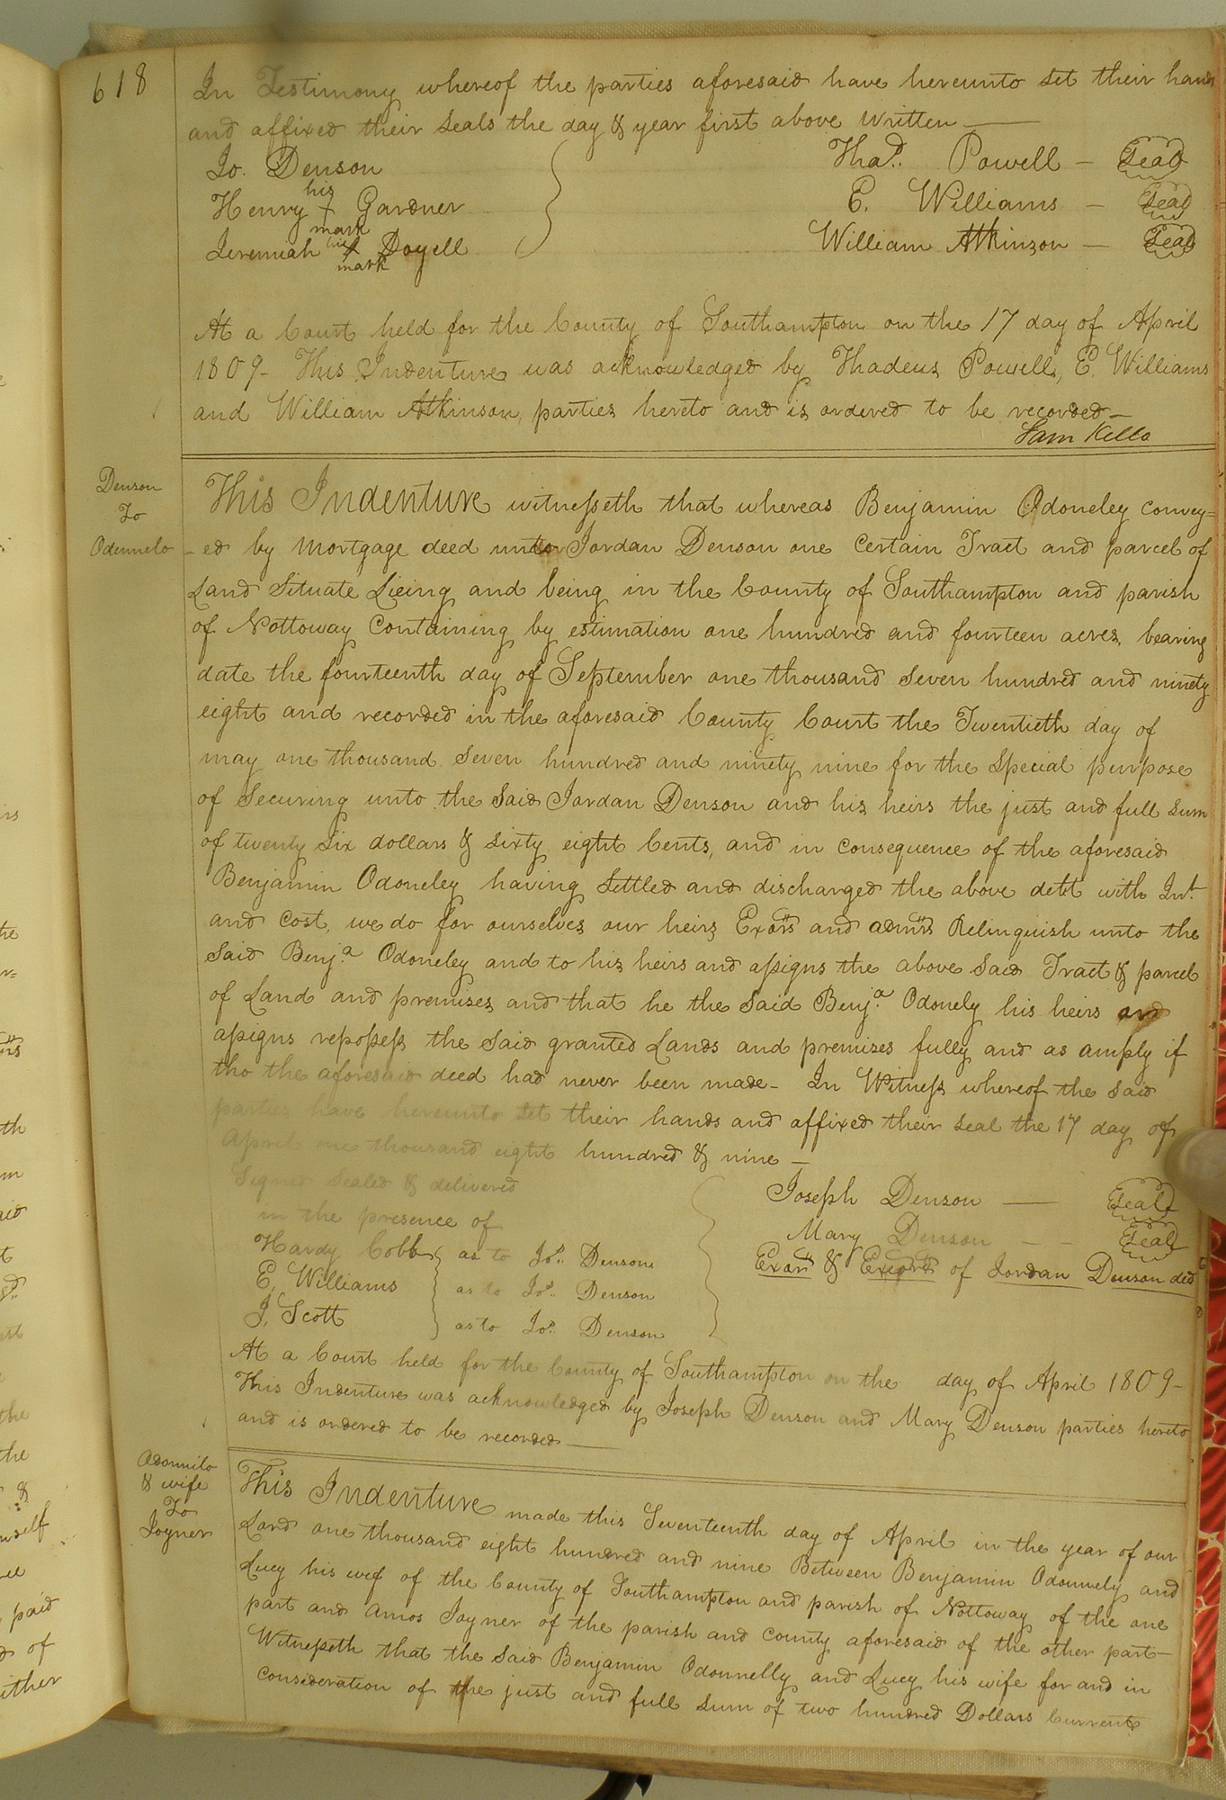 618
In Testimony whereof the parties aforesaid have hereunto set their hands
and affixed their seals the day & year first above written —
Jo. Denson Thad. Powell — Seal
his
Henry + Gardner E. Williams — Seal
mark
his
Jeremiah + Doyell William Atkinson — Seal
mark
At a Court held for the County of Southampton on the 17 day of April
1809 - This Indenture was acknowledged by Thadeus Powell, E. Williams
and William Atkinson, parties hereto and is ordered to be recorded —
Sam Kello
Denson
To
Odonnelo
This Indenture witnesseth that whereas Benjamin Odoneley convey=
-ed by mortgage deed unto Jordan Denson one Certain Tract and parcel of
Land Situate Lieing and being in the County of Southampton and parish
of Nottoway Containing by estimation one hundred and fourteen acres, bearing
date the fourteenth day of September one thousand seven hundred and ninety
eight and recorded in the aforesaid County Court the Twentieth day of
may one thousand seven hundred and ninety nine for the special purpose
of securing unto the said Jordan Denson and his heirs the just and full sum
of twenty six dollars & sixty eight Cents, and in consequence of the aforesaid
Benjamin Odoneley having settled and discharged the above debt with Int.
and Cost, we do for ourselves our heirs Exors and admrs Relinquish unto the
said Benja. Odoneley and to his heirs and assigns the above said Tract & parcel
of Land and premises and that he the said Benja. Odonely his heirs and
assigns repossess the said granted Lands and premises fully and as amply if
tho the aforesaid deed had never been made - In Witness whereof the said
parties have hereunto set their hands and affixed their seal the 17 day of
April one thousand eight hundred & nine —
Signed Sealed & delivered
in the presence of
Joseph Denson — Seal
Mary Denson — — Seal
Exor & Exectx of Jordan Denson decd
Hardy Cobb as to Jos. Denson
E, Williams as to Jos. Denson
J, Scott as to Jos. Denson
At a Court held for the County of Southampton on the day of April 1809 -
This Indenture was acknowledged by Joseph Denson and Mary Denson parties hereto
and is ordered to be recorded —
Adonnilo
& wife
To
Joyner
This Indenture made this Seventeenth day of April in the year of our
Lord one thousand eight hundred and nine Between Benjamin Odonnely and
Lucy his wif of the County of Southampton and parish of Nottoway of the one
part and Amos Joyner of the parish and County aforesaid of the other part —
Witnesseth that the said Benjamin Odonnelly and Lucy his wife for and in
consideration of the just and full sum of two hundred Dollars Current